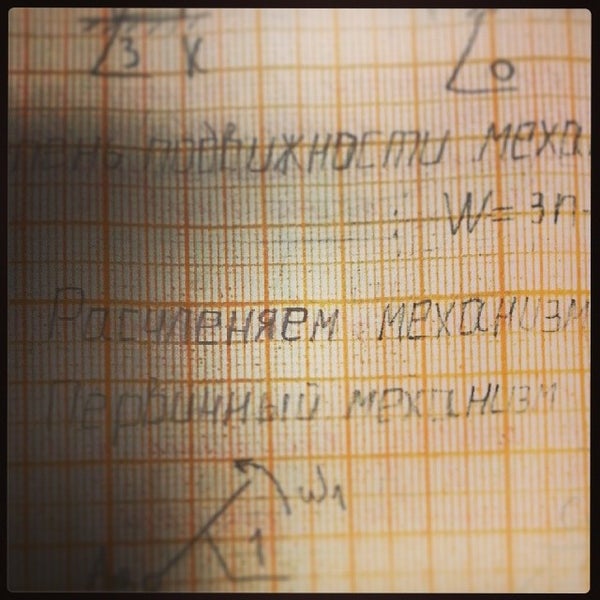 3 K 0
пень подвижности меха
: W = 3n -
Расчленяем механизм
Первичный механизм
ω1
1